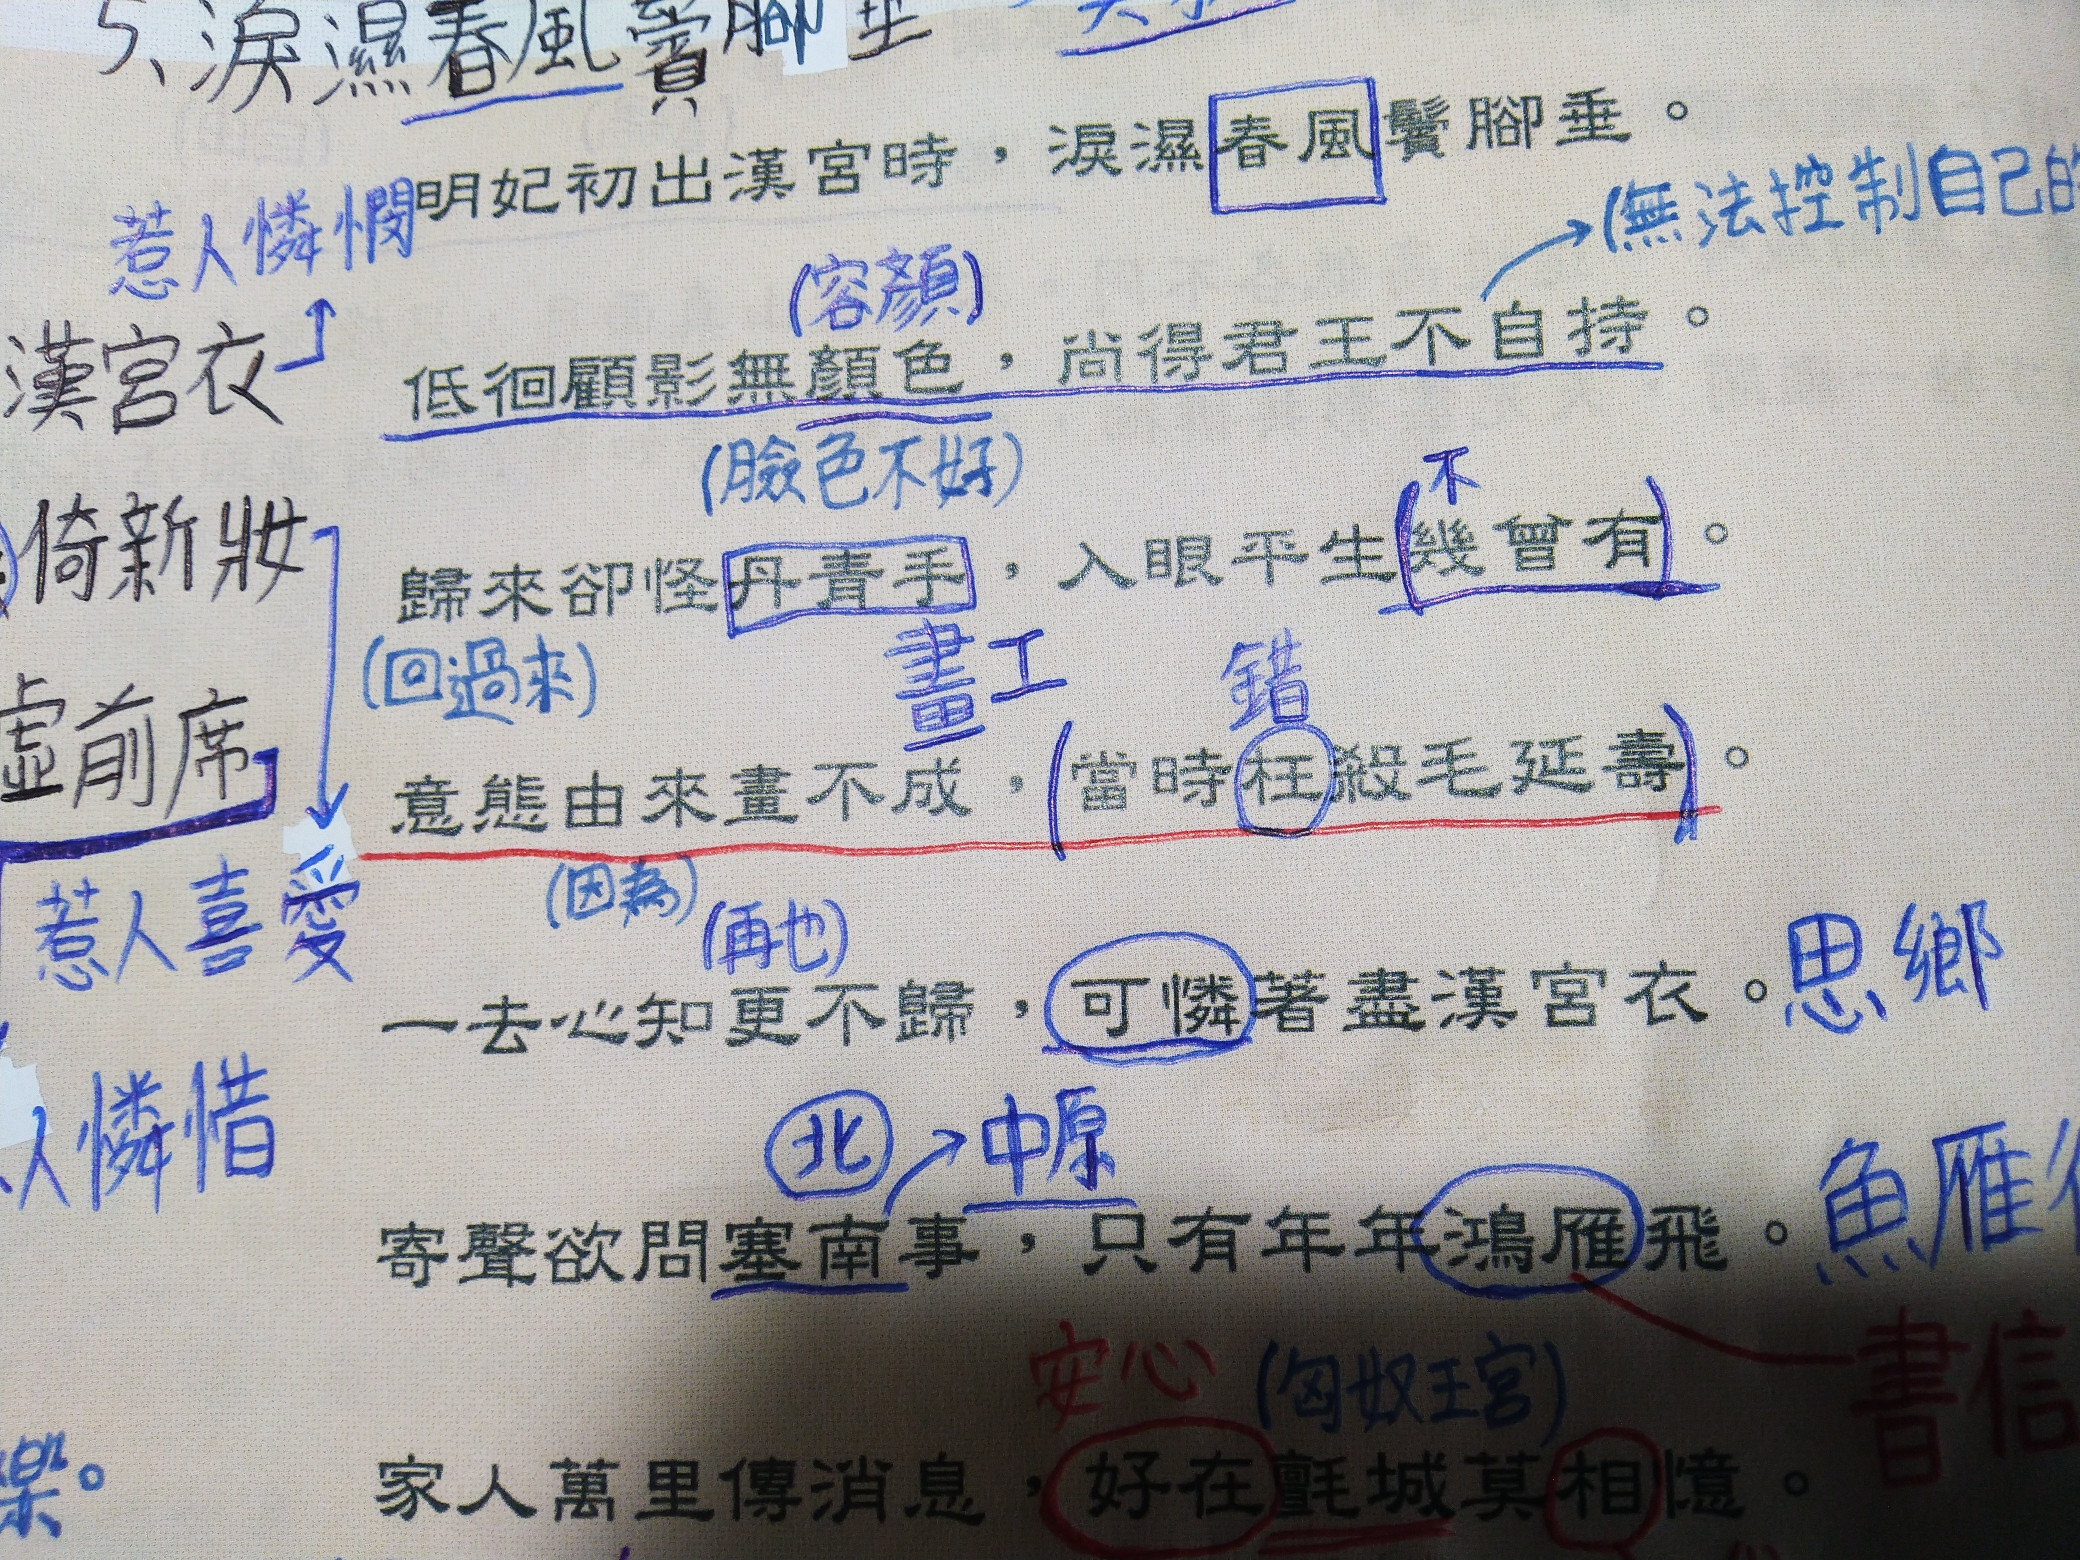 5、淚濕春風鬢腳垂
明妃初出漢宮時，淚濕春風鬢腳垂。
惹人憐憫
(無法控制自己的
(容顏)
漢宮衣
低徊顧影無顏色，尚得君王不自持。
(臉色不好)
不
倚新妝
歸來卻怪丹青手，入眼平生幾曾有。
(回過來)
畫工
錯
虛前席
意態由來畫不成，(當時枉殺毛延壽)。
惹人喜愛
(因為)
(再也)
一去心知更不歸，可憐著盡漢宮衣。思鄉
人憐惜
北
中原
寄聲欲問塞南事，只有年年鴻雁飛。魚雁
書信
安心
(匈奴王宮)
樂。
家人萬里傳消息，好在氈城莫相憶。